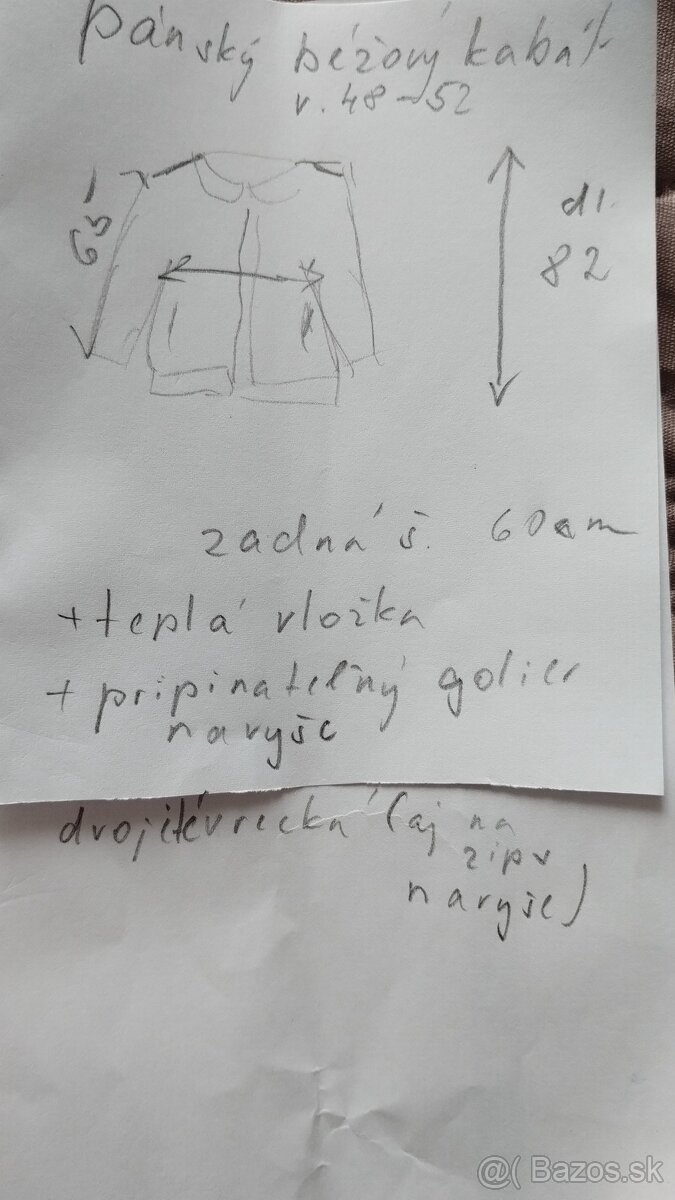 pánský béžový kabát
v. 48-52
65
dl.
82
zadná š. 60cm
+ teplá vložka
+ pripinateľný golier
navyše
dvojité vrecká (aj na
zips
navyše)
@( Bazos.sk